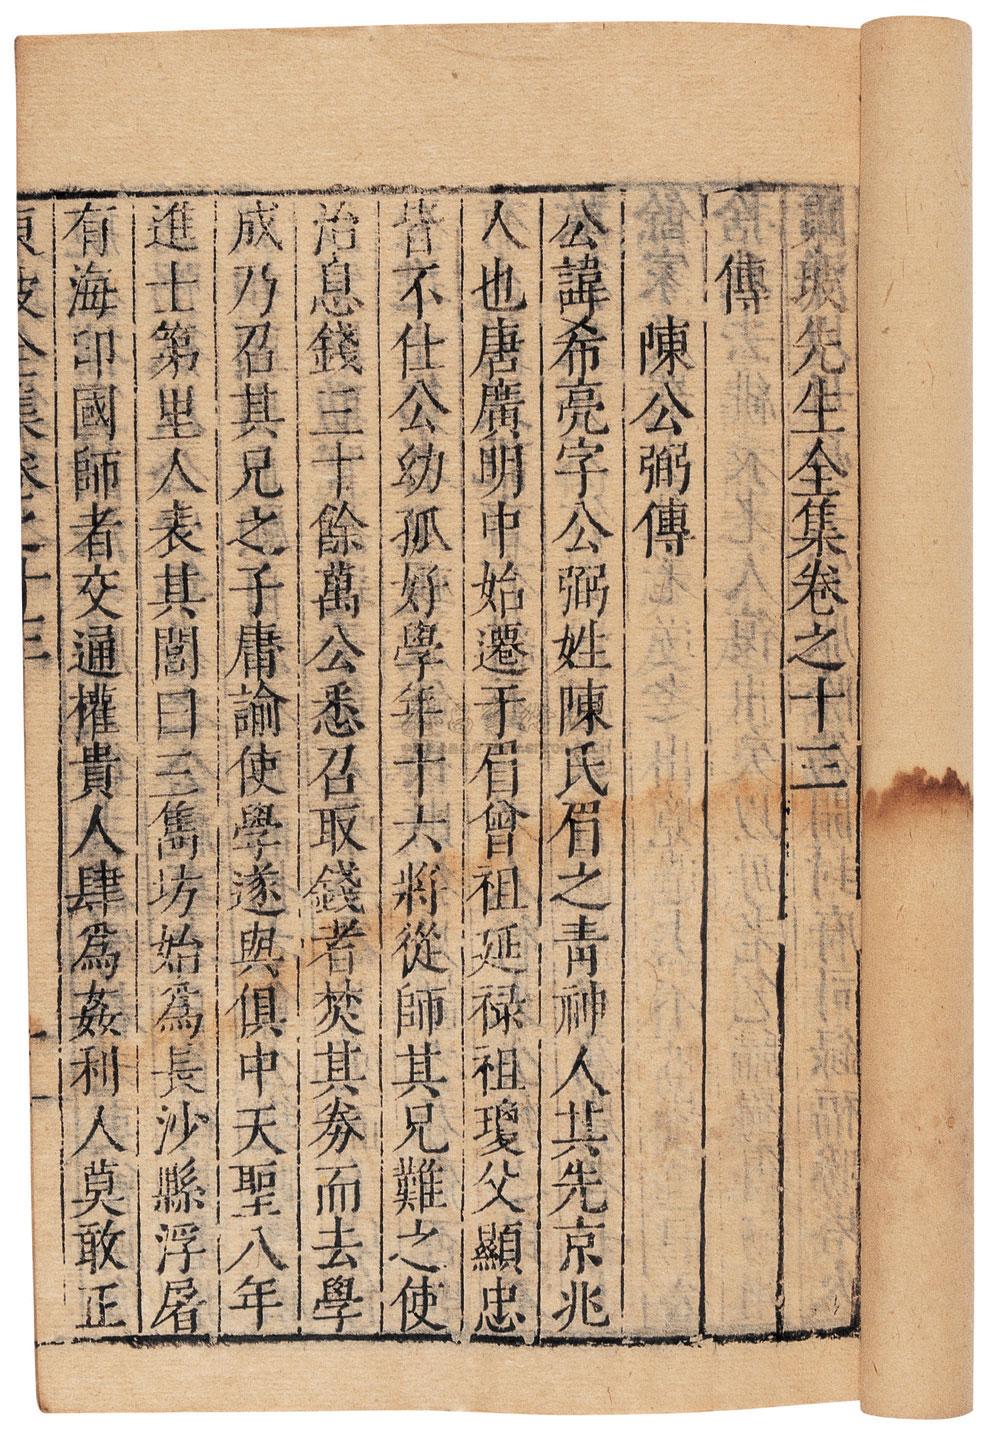 蘇先生全集卷之十三
傳
陳公弼傳
公諱希亮字公弼姓陳氏眉之青神人其先京兆
人也唐廣明中始遷于眉曾祖延祿祖瓊父顯忠
皆不仕公幼孤好學年十六將從師其兄難之使
治息錢三十餘萬公悉召取錢者焚其券而去學
成乃召其兄之子庸諭使學遂與俱中天聖八年
進士第里人表其閭曰三雋坊始爲長沙縣浮屠
有海印國師者交通權貴人肆爲姦利人莫敢正
東坡全集卷之十三